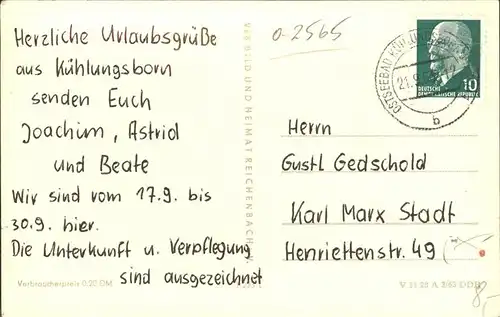 Herzliche Urlaubsgrüße
aus Kühlungsborn
senden Euch
Joachim, Astrid
und Beate
Wir sind vom 17.9. bis
30.9. hier.
Die Unterkunft u. Verpflegung
sind ausgezeichnet
Verbraucherpreis 0,20 DM
VEB BILD UND HEIMAT REICHENBACH
o-2565
OSTSEEBAD KÜHLUNGSBORN
21.9.
b
DEUTSCHE
DEMOKRATISCHE REPUBLIK
10
Herrn
Gustl Gedschold
Karl Marx Stadt
Henriettenstr. 49
V 11 28 A 2/63 DDR
8,-